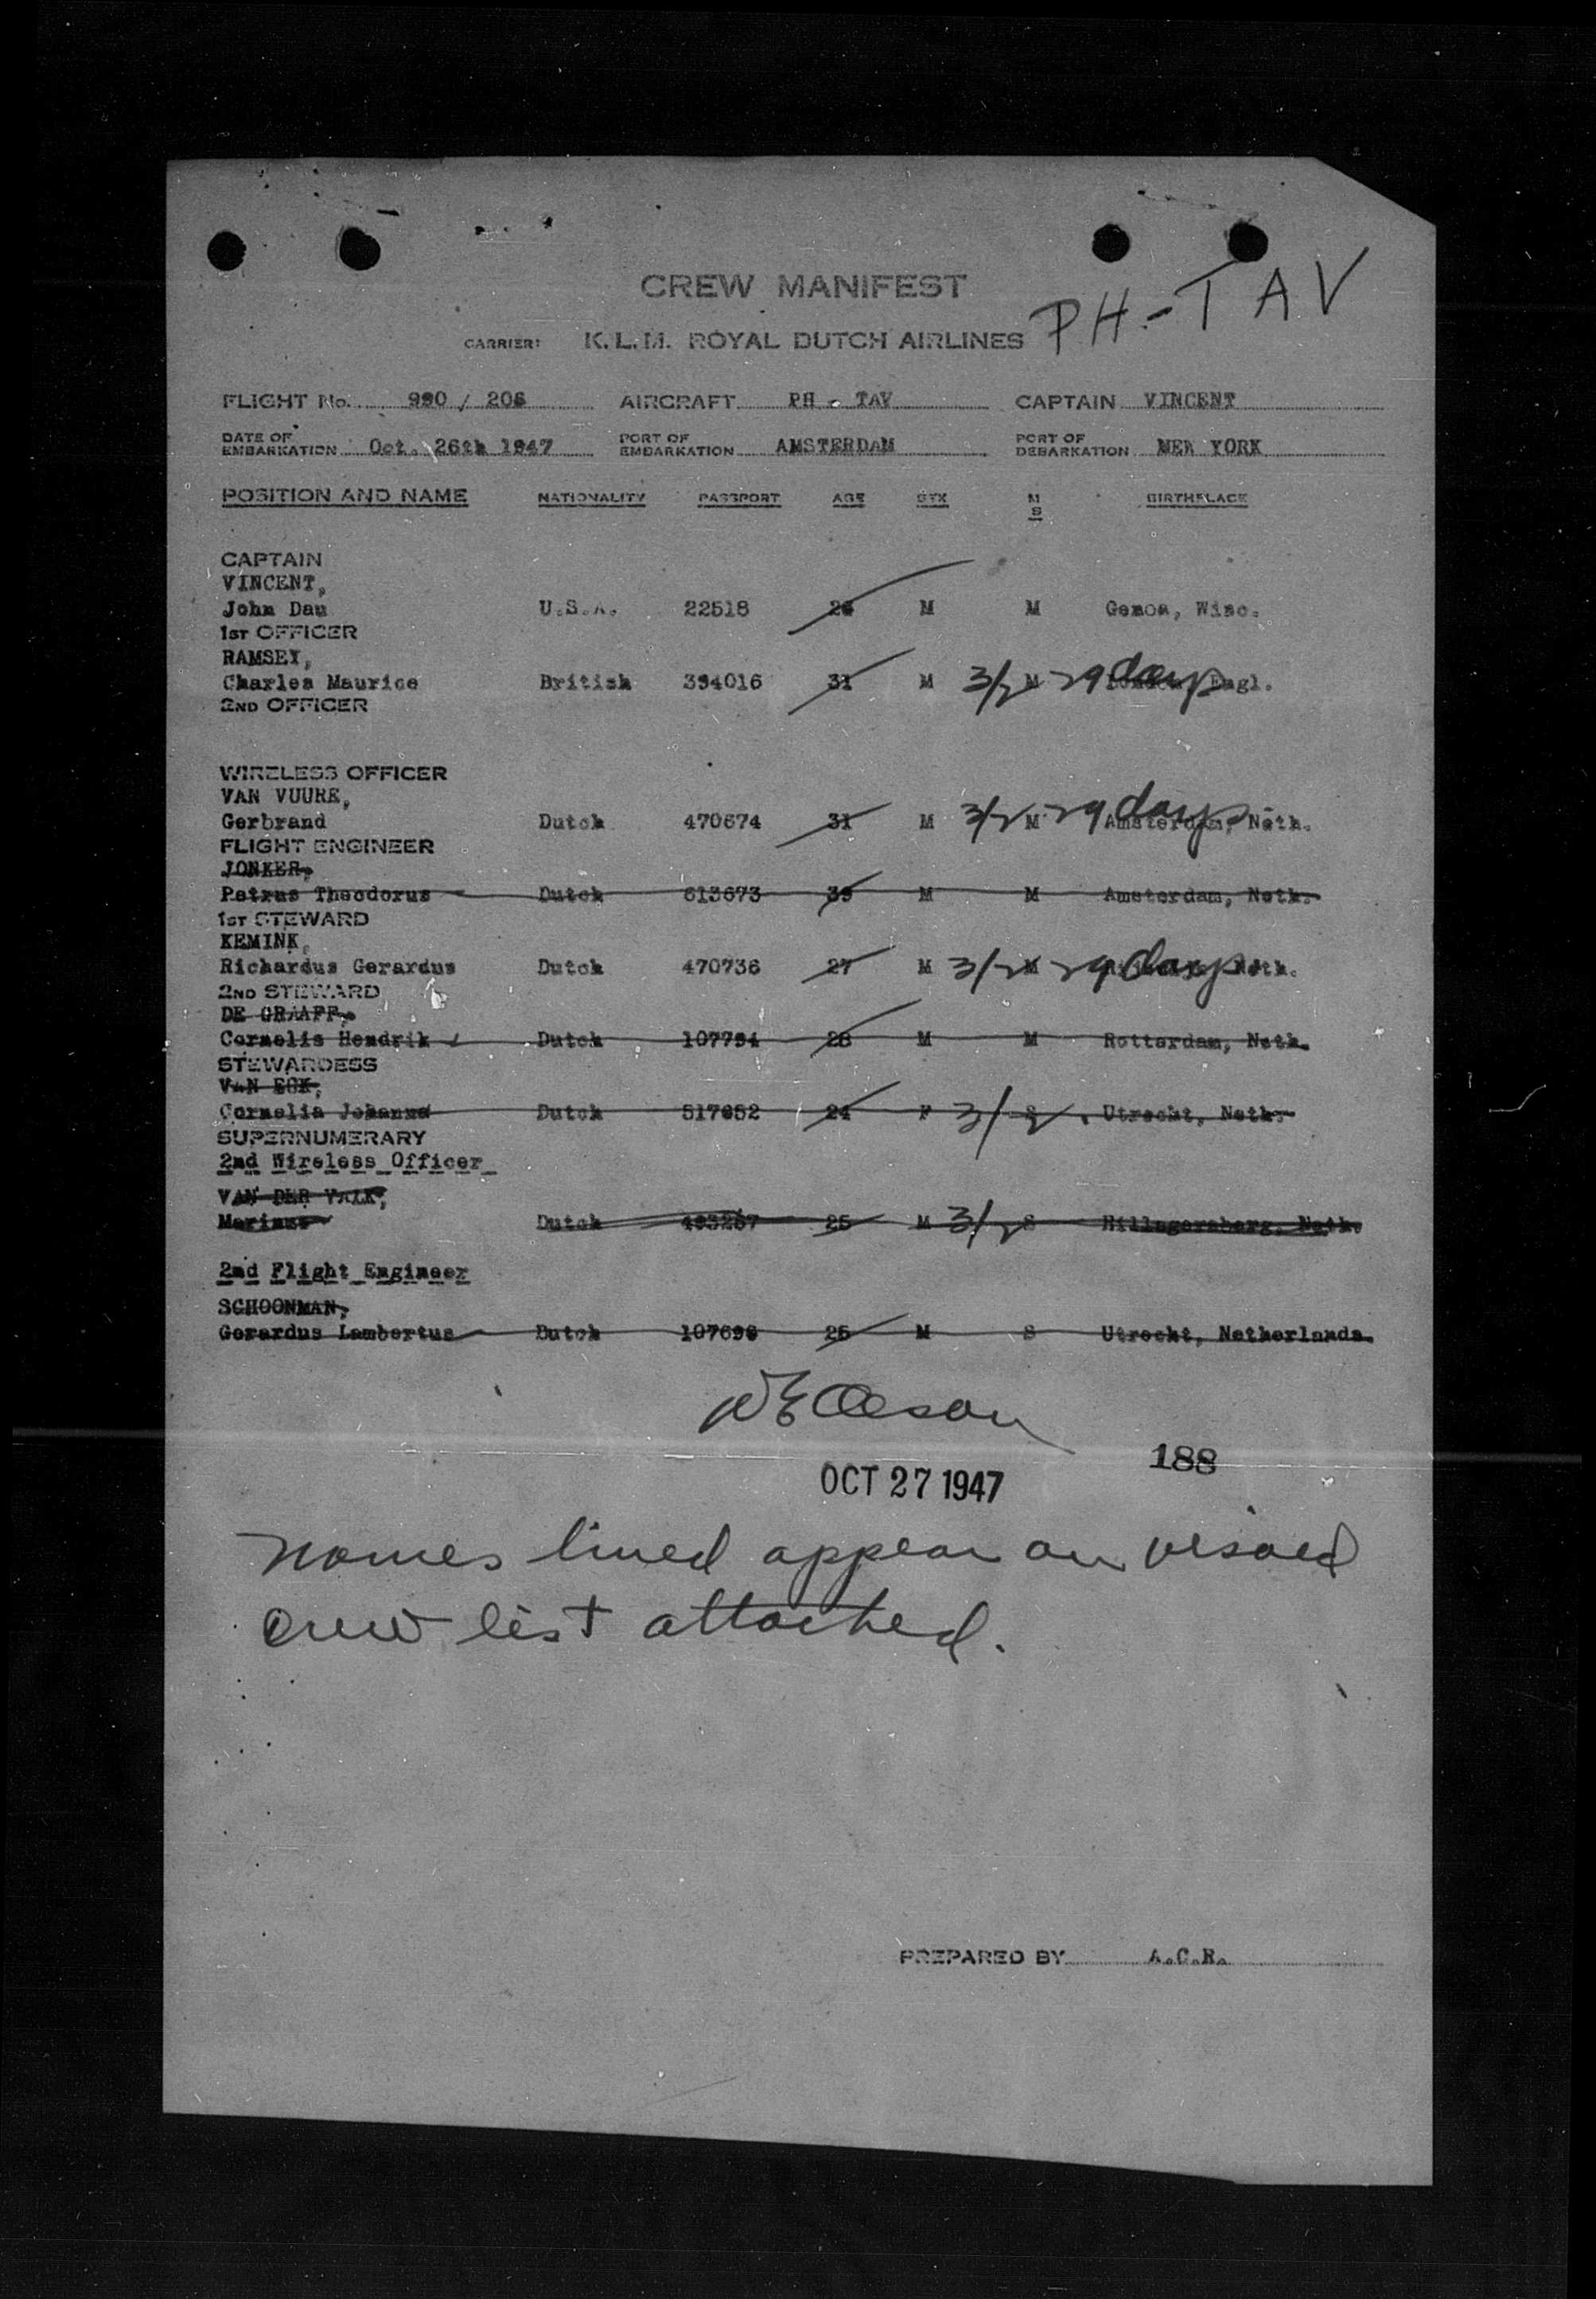 CREW MANIFEST
PH-TAV
CARRIER: K.L.M. ROYAL DUTCH AIRLINES
FLIGHT No. 990 / 206 AIRCRAFT PH - TAV CAPTAIN VINCENT
DATE OF EMBARKATION Oct. 26th 1947 PORT OF EMBARKATION AMSTERDAM PORT OF DEBARKATION NEW YORK
POSITION AND NAME NATIONALITY PASSPORT AGE SEX M S BIRTHPLACE
CAPTAIN
VINCENT,
John Dau U.S.A. 22518 26 M M Genoa, Wisc.
1ST OFFICER
RAMSEY,
Charles Maurice British 394016 31 M 3/2 M 29 days Engl.
2ND OFFICER
WIRELESS OFFICER
VAN VUURE,
Gerbrand Dutch 470674 31 M 3/2 M 29 days Amsterdam, Neth.
FLIGHT ENGINEER
JONKER,
Petrus Theodorus Dutch 613673 39 M M Amsterdam, Neth.
1ST STEWARD
KEMINK,
Richardus Gerardus Dutch 470736 27 M 3/2 M 29 days Neth.
2ND STEWARD
DE GRAAFF,
Cornelis Hendrik Dutch 107794 28 M M Rotterdam, Neth.
STEWARDESS
VAN ECK,
Cornelia Johanna Dutch 517652 24 F 3/2 S Utrecht, Neth.
SUPERNUMERARY
2nd Wireless Officer
VAN DER VALK,
Marinus Dutch 493267 25 M 3/2 S Hillegersberg, Neth.
2nd Flight Engineer
SCHOONMAN,
Gerardus Lambertus Dutch 107696 25 M S Utrecht, Netherlands.
188
OCT 27 1947
Names lined appear on visaed
crew list attached.
PREPARED BY A.C.R.